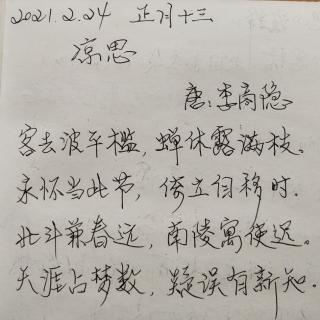 2021.2.24 正月十三
凉思
唐:李商隐
客去波平槛,蝉休露满枝。
永怀当此节,倚立自移时。
北斗兼春远,南陵寓使迟。
天涯占梦数,疑误有新知。